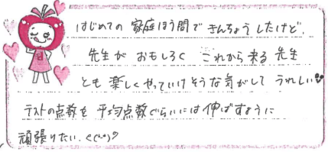 はじめての家庭ほう問できんちょうしたけど、
先生がおもしろく これから来る先生
とも楽しくやっていけそうな気がして うれしい♡
テストの点数も 平均点数ぐらいには伸ばすように
頑張りたい。